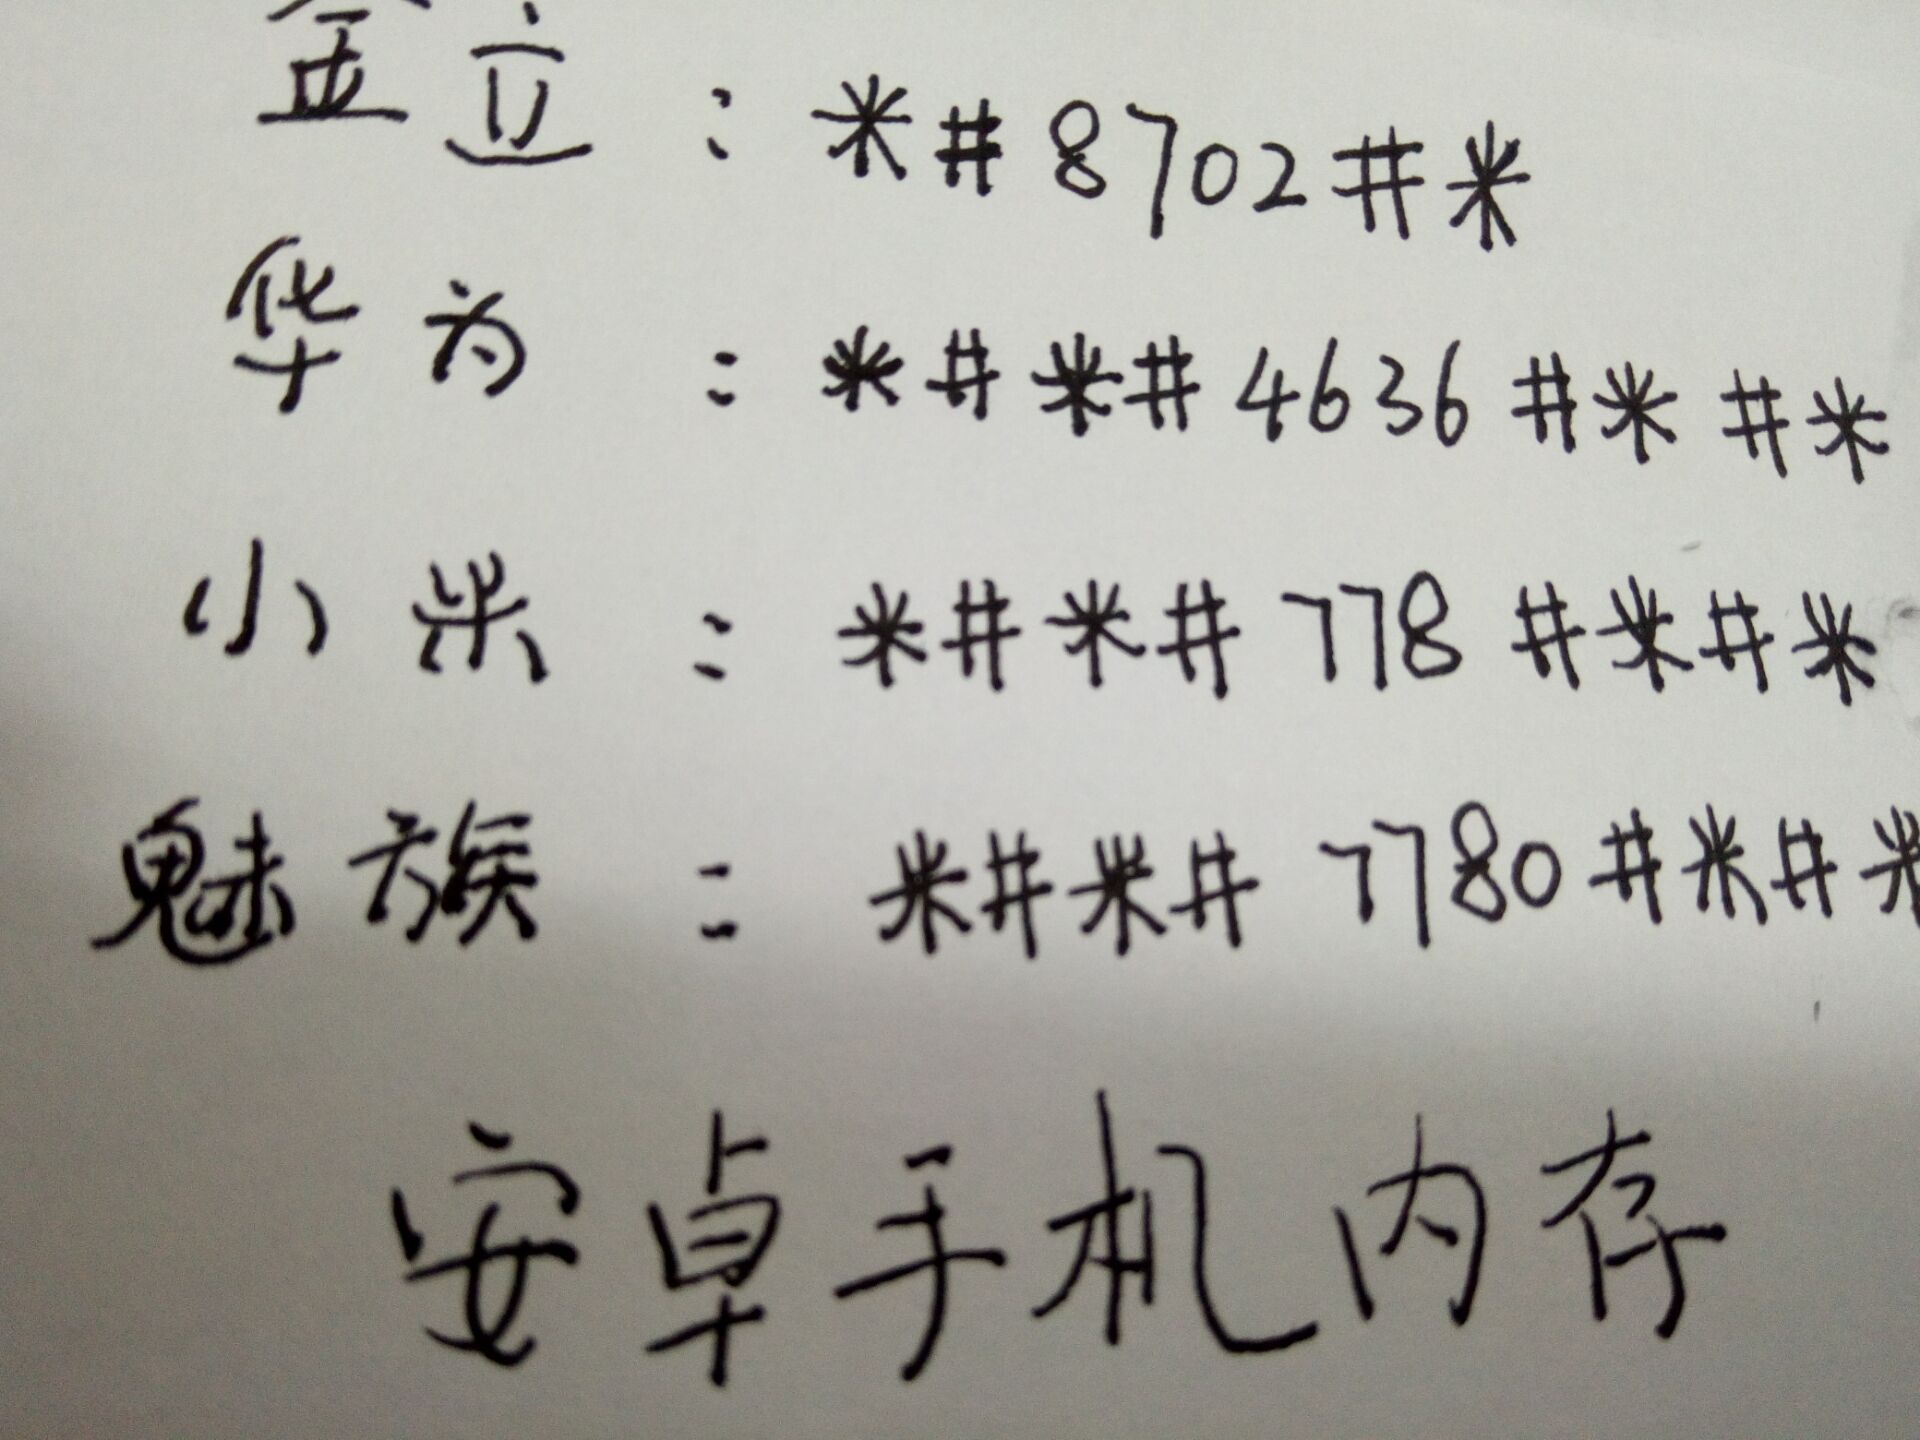 金立：*#8702#*
华为：*#*#4636#*#*
小米：*#*#778#*#*
魅族：*#*#7780#*#*
安卓手机内存